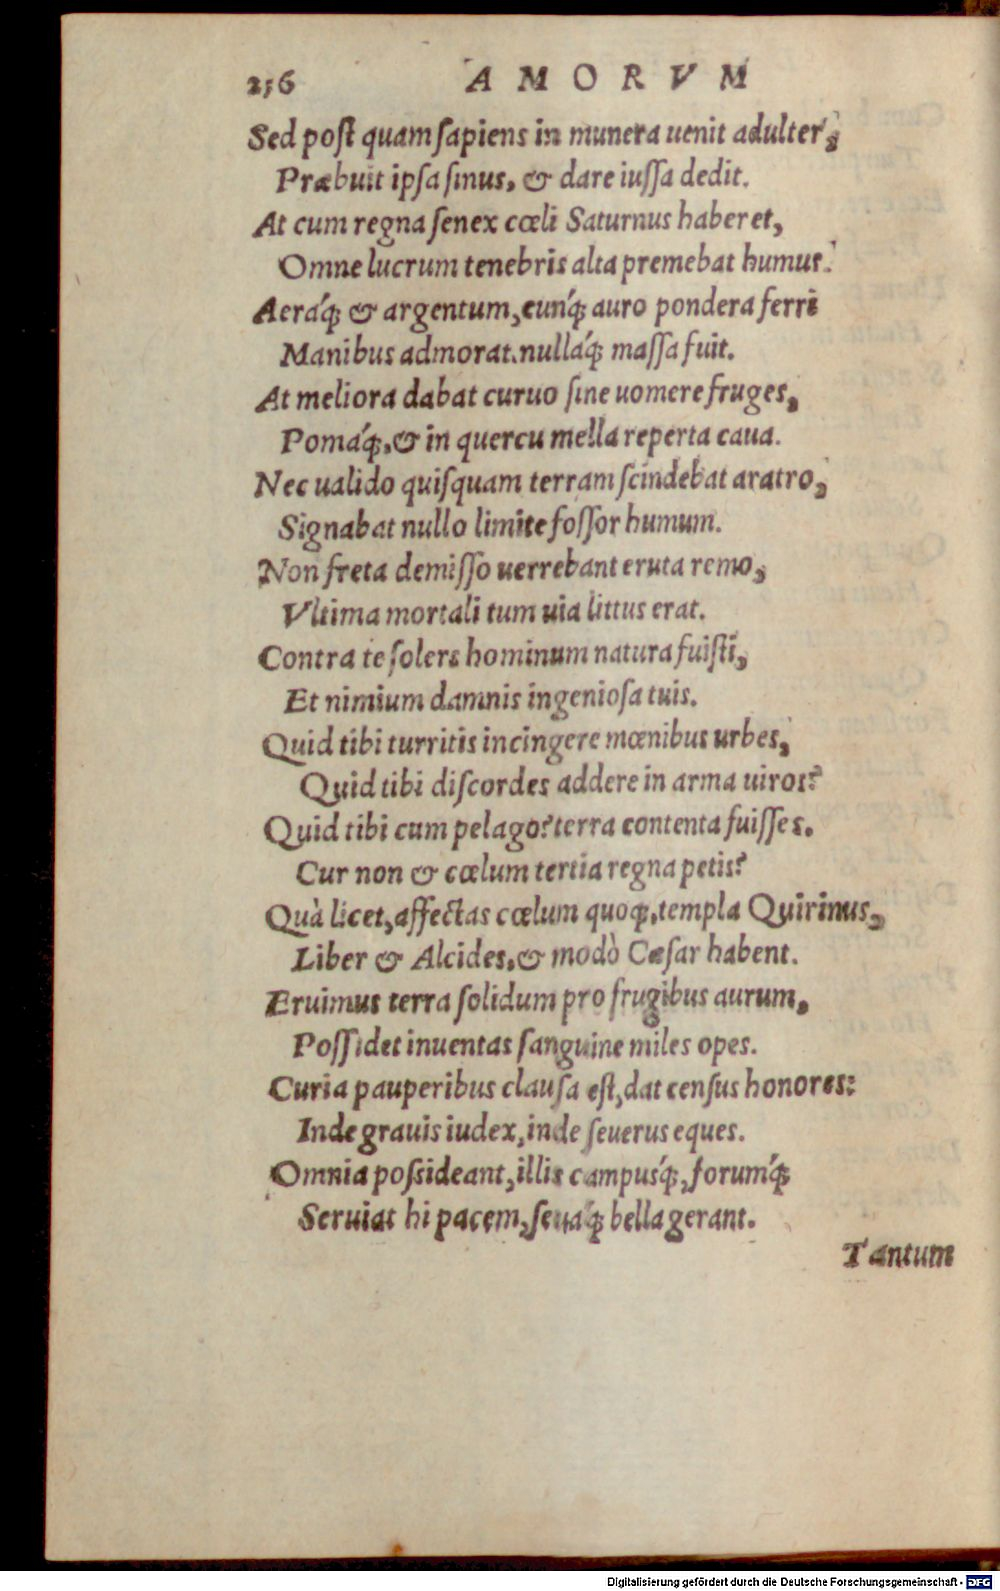 256 AMORVM
Sed post quam sapiens in munera uenit adulter,
Præbuit ipsa sinus, & dare iussa dedit.
At cum regna senex cœli Saturnus haberet,
Omne lucrum tenebris alta premebat humus.
Aeráq́; & argentum, cunq́; auro pondera ferri
Manibus admorat, nulláq́; massa fuit.
At meliora dabat curuo sine uomere fruges,
Pomáq́;, & in quercu mella reperta caua.
Nec ualido quisquam terram scindebat aratro,
Signabat nullo limite fossor humum.
Non freta demisso uerrebant eruta remo,
Vltima mortali tum uia littus erat.
Contra te solers hominum natura fuisti,
Et nimium damnis ingeniosa tuis.
Quid tibi turritis incingere mœnibus urbes,
Quid tibi discordes addere in arma uiros?
Quid tibi cum pelago? terra contenta fuisses.
Cur non & cœlum tertia regna petis?
Quà licet, affectas cœlum quoq;, templa Quirinus,
Liber & Alcides, & modò Cæsar habent.
Eruimus terra solidum pro frugibus aurum,
Possidet inuentas sanguine miles opes.
Curia pauperibus clausa est, dat census honores:
Inde grauis iudex, inde seuerus eques.
Omnia possideant, illis campusq́;, forumq́;
Seruiat hi pacem, seuáq́; bella gerant.
Tantum
Digitalisierung gefördert durch die Deutsche Forschungsgemeinschaft - DFG